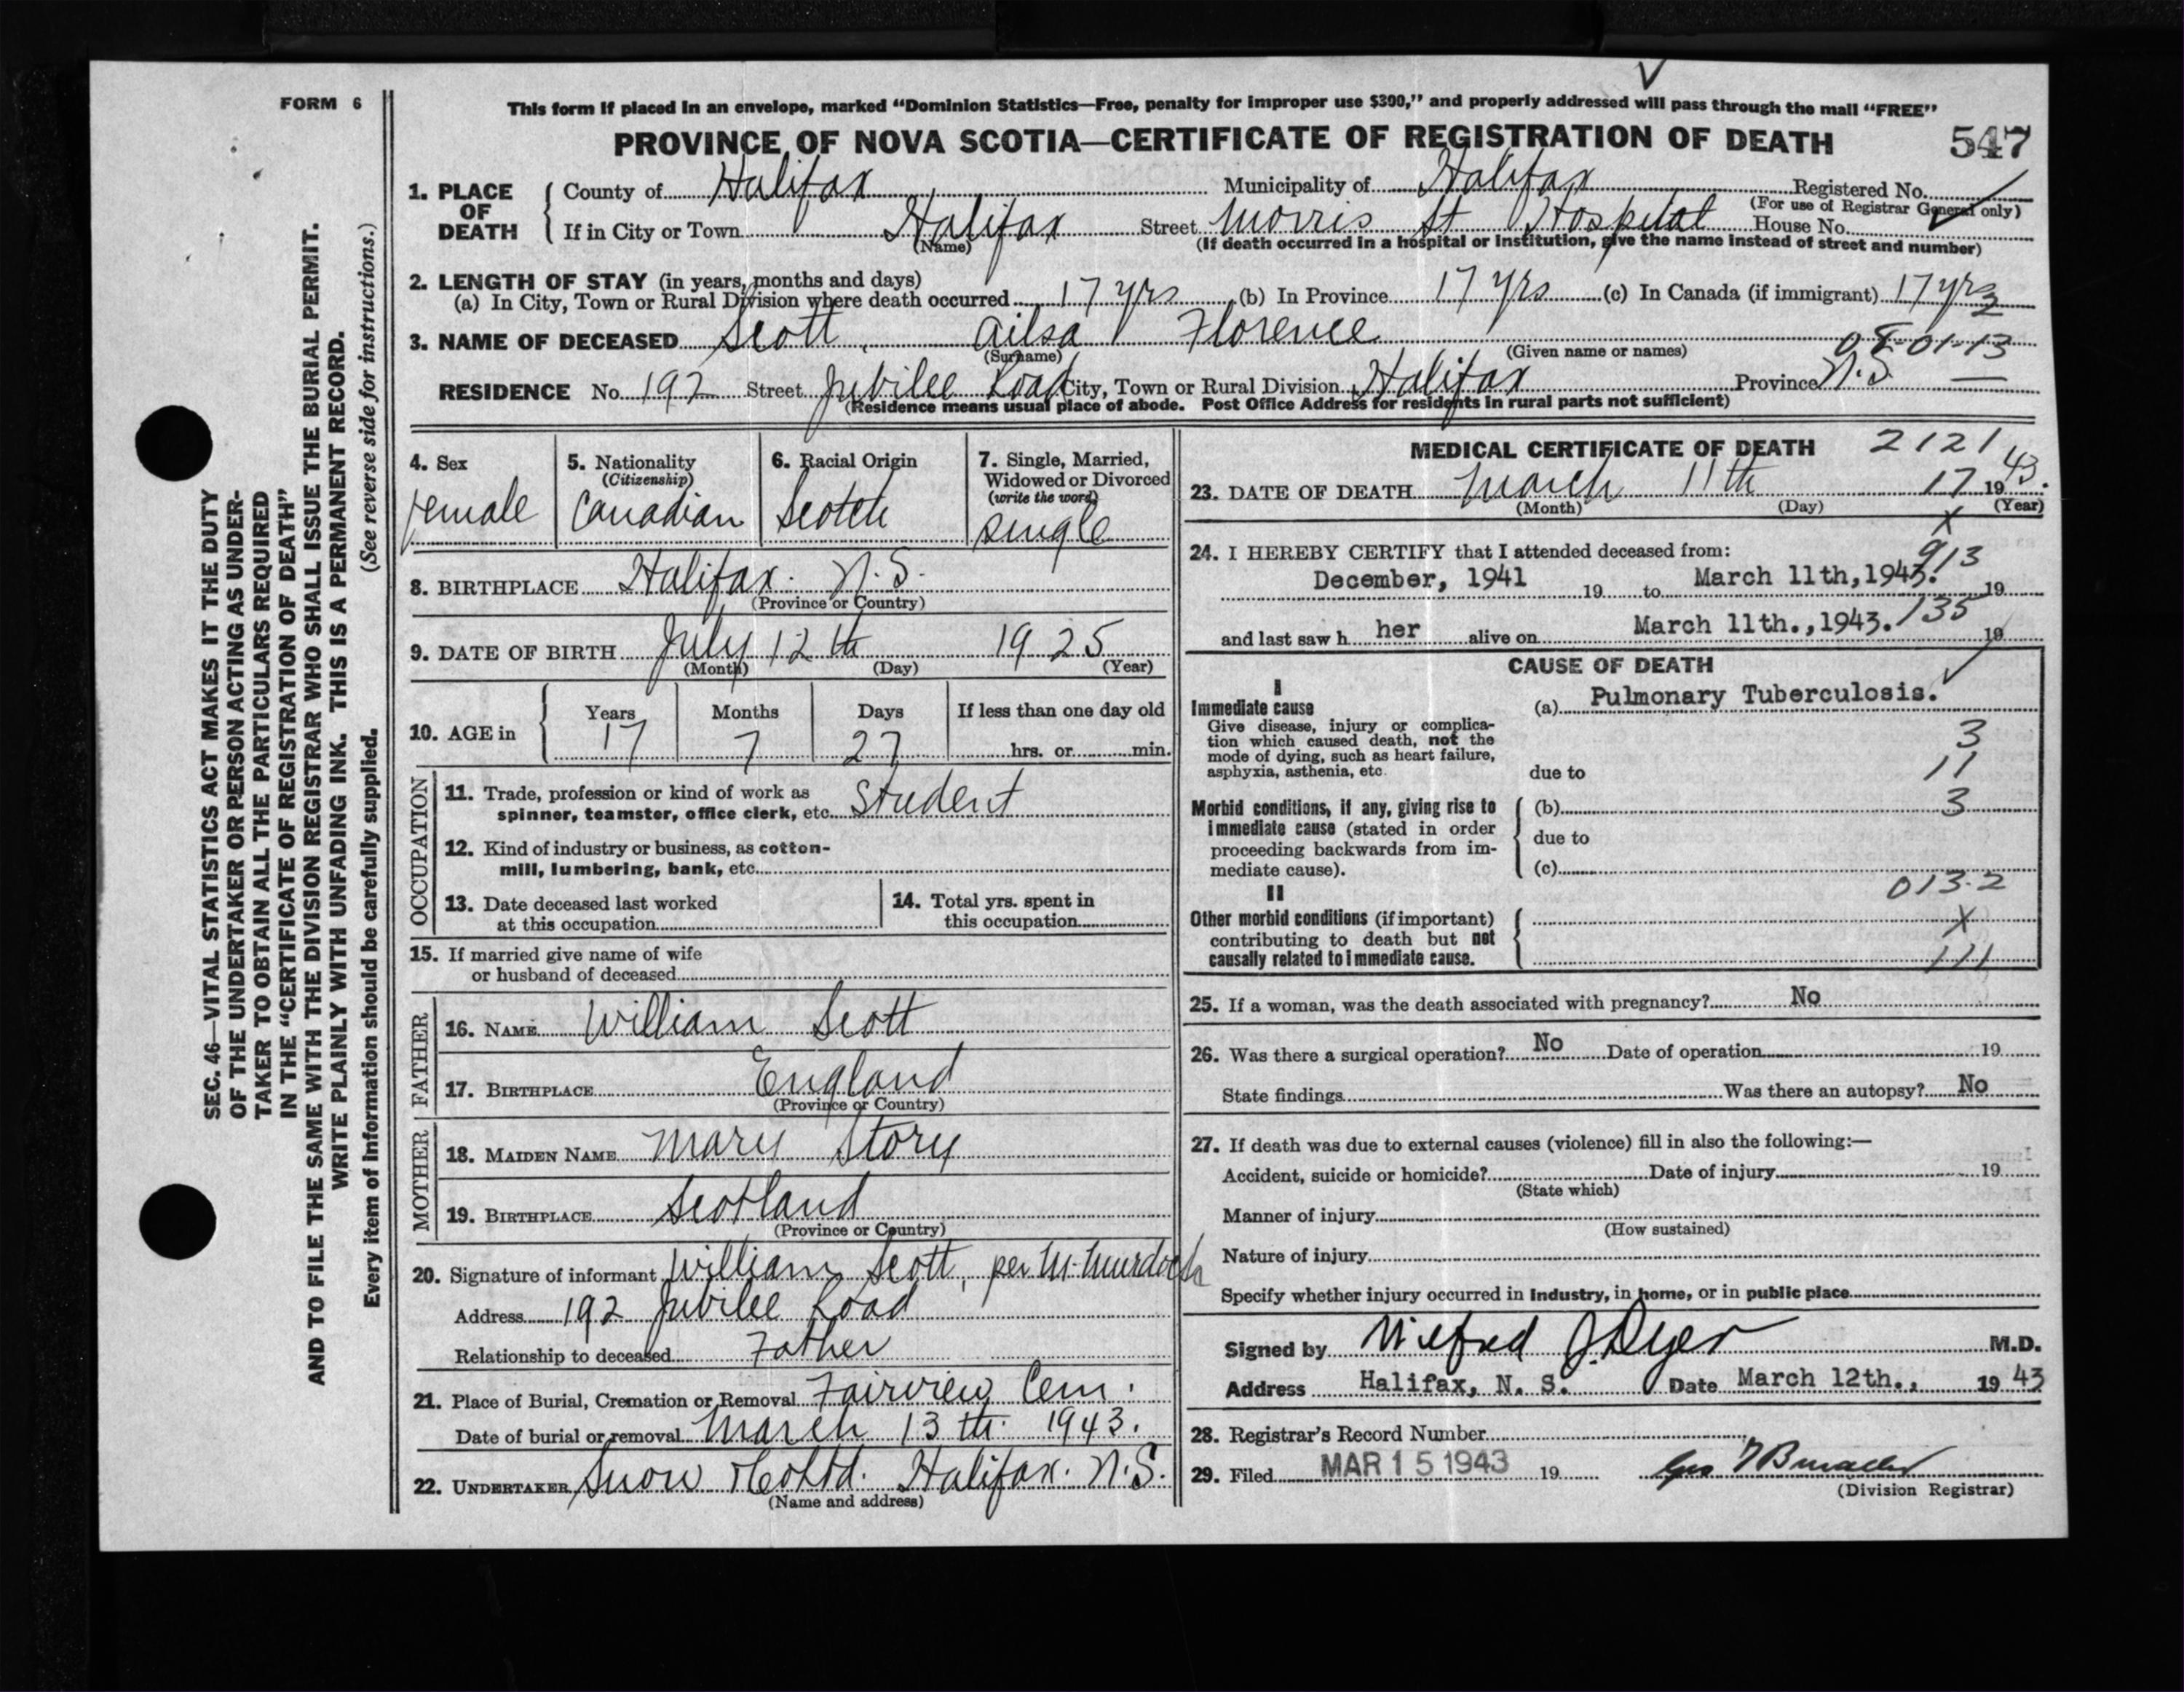 FORM 6
This form if placed in an envelope, marked "Dominion Statistics—Free, penalty for improper use $300," and properly addressed will pass through the mail "FREE"
PROVINCE OF NOVA SCOTIA—CERTIFICATE OF REGISTRATION OF DEATH 547
1. PLACE OF DEATH County of Halifax Municipality of Halifax Registered No.
(For use of Registrar General only)
If in City or Town Halifax Street Morris St Hospital House No.
(Name) (If death occurred in a hospital or institution, give the name instead of street and number)
2. LENGTH OF STAY (in years, months and days)
(a) In City, Town or Rural Division where death occurred 17 yrs (b) In Province 17 yrs (c) In Canada (if immigrant) 17 yrs
2
3. NAME OF DECEASED Scott, Ailsa Florence
(Surname) (Given name or names) 08-01-13
RESIDENCE No. 192 Street Jubilee Road City, Town or Rural Division Halifax Province N.S.
(Residence means usual place of abode. Post Office Address for residents in rural parts not sufficient)
4. Sex female
5. Nationality (Citizenship) Canadian
6. Racial Origin Scotch
7. Single, Married, Widowed or Divorced (write the word) single
8. BIRTHPLACE Halifax. N.S.
(Province or Country)
9. DATE OF BIRTH July 12th 1925
(Month) (Day) (Year)
10. AGE in Years Months Days If less than one day old
17 7 27 hrs. or min.
OCCUPATION
11. Trade, profession or kind of work as
spinner, teamster, office clerk, etc. Student
12. Kind of industry or business, as cotton-
mill, lumbering, bank, etc.
13. Date deceased last worked
at this occupation
14. Total yrs. spent in
this occupation
15. If married give name of wife
or husband of deceased
FATHER
16. NAME William Scott
17. BIRTHPLACE England
(Province or Country)
MOTHER
18. MAIDEN NAME Mary Story
19. BIRTHPLACE Scotland
(Province or Country)
20. Signature of informant William Scott, per M. Murdoch
Address 192 Jubilee Road
Relationship to deceased Father
21. Place of Burial, Cremation or Removal Fairview Cem.
Date of burial or removal March 13th. 1943.
22. UNDERTAKER Snow & Co Ltd. Halifax. N.S.
(Name and address)
MEDICAL CERTIFICATE OF DEATH 2121
23. DATE OF DEATH March 11th 17 1943.
(Month) (Day) (Year)
X
24. I HEREBY CERTIFY that I attended deceased from: 913
December, 1941 19 to March 11th, 1943. 19
and last saw h her alive on March 11th., 1943. 135 19
CAUSE OF DEATH
I
Immediate cause
Give disease, injury or complica-
tion which caused death, not the
mode of dying, such as heart failure,
asphyxia, asthenia, etc.
(a) Pulmonary Tuberculosis.
3
due to 11
Morbid conditions, if any, giving rise to
immediate cause (stated in order
proceeding backwards from im-
mediate cause).
(b) 3
due to
(c)
013.2
II
Other morbid conditions (if important)
contributing to death but not
causally related to immediate cause.
X
111
25. If a woman, was the death associated with pregnancy? No
26. Was there a surgical operation? No Date of operation 19
State findings Was there an autopsy? No
27. If death was due to external causes (violence) fill in also the following:—
Accident, suicide or homicide? Date of injury 19
(State which)
Manner of injury
(How sustained)
Nature of injury
Specify whether injury occurred in industry, in home, or in public place
Signed by Wilfred J. Dyer M.D.
Address Halifax, N. S. Date March 12th., 1943
28. Registrar's Record Number
29. Filed MAR 15 1943 19
(Division Registrar)
SEC. 46—VITAL STATISTICS ACT MAKES IT THE DUTY
OF THE UNDERTAKER OR PERSON ACTING AS UNDER-
TAKER TO OBTAIN ALL THE PARTICULARS REQUIRED
IN THE "CERTIFICATE OF REGISTRATION OF DEATH"
AND TO FILE THE SAME WITH THE DIVISION REGISTRAR WHO SHALL ISSUE THE BURIAL PERMIT.
WRITE PLAINLY WITH UNFADING INK. THIS IS A PERMANENT RECORD.
Every item of information should be carefully supplied. (See reverse side for instructions.)